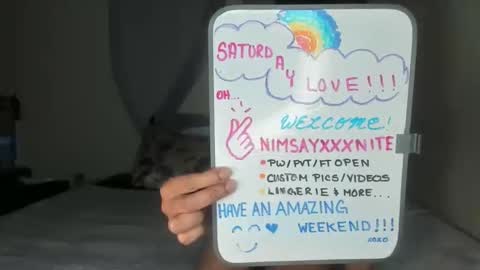 SATURD
AY LOVE!!!
OH...
WELCOME!
NIMSAYXXXNITE
PW/PVT/FT OPEN
CUSTOM PICS/VIDEOS
LINGERIE & MORE...
HAVE AN AMAZING
WEEKEND!!!
XOXO